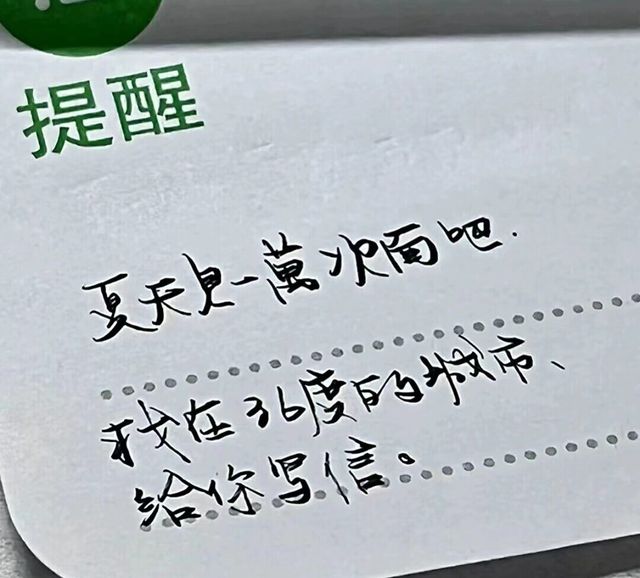 提醒
夏天見一萬次面吧.
我在36度的城市、
給你写信。